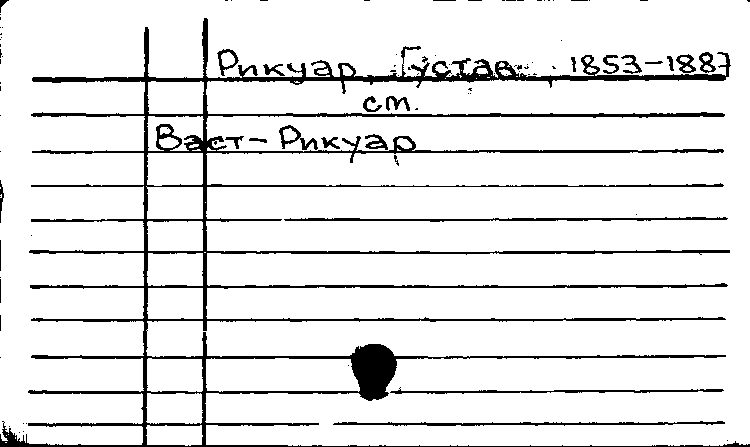 Рикуар, Густав, 1853-1887
см.
Васт-Рикуар